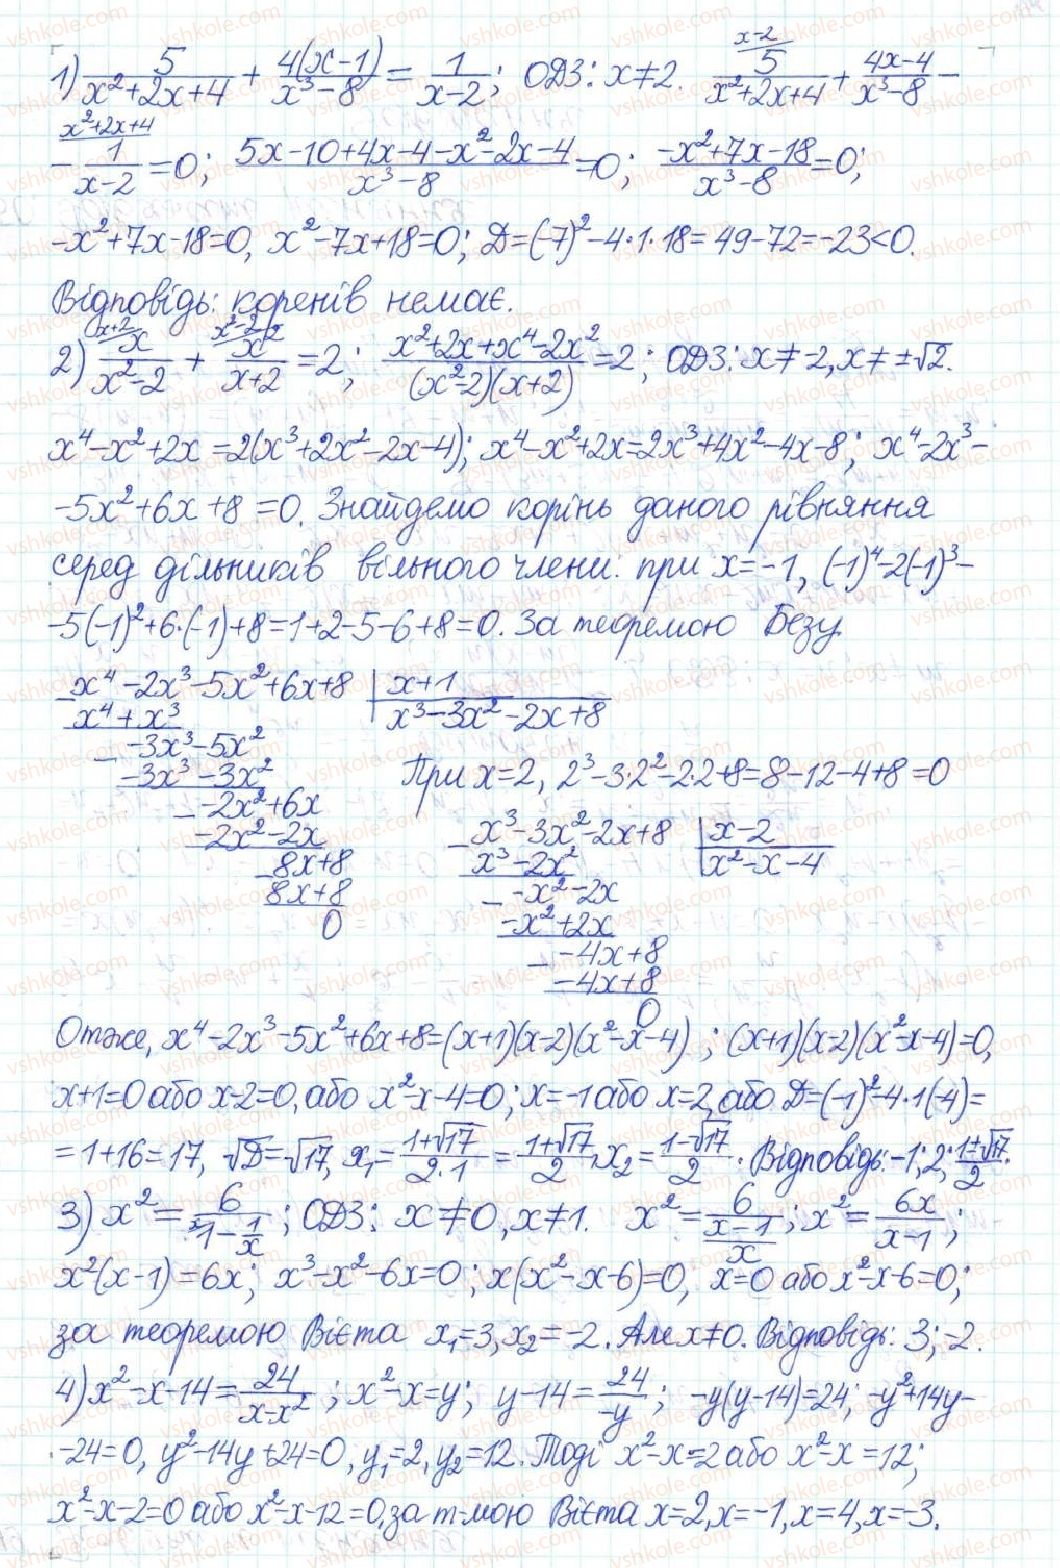 1) 5/(x²+2x+4) + 4(x-1)/(x³-8) = 1/(x-2); ОДЗ: x≠2. (x-2) 5/(x²+2x+4) + (4x-4)/(x³-8) -
(x²+2x+4) - 1/(x-2) = 0; (5x-10+4x-4-x²-2x-4)/(x³-8) = 0; (-x²+7x-18)/(x³-8) = 0;
-x²+7x-18=0, x²-7x+18=0; D=(-7)²-4·1·18=49-72=-23<0.
Відповідь: коренів немає.
2) (x+2) x/(x²-2) + (x²-2) x²/(x+2) = 2; (x²+2x+x⁴-2x²)/((x²-2)(x+2)) = 2; ОДЗ: x≠-2, x≠±√2.
x⁴-x²+2x=2(x³+2x²-2x-4); x⁴-x²+2x=2x³+4x²-4x-8; x⁴-2x³-
-5x²+6x+8=0. Знайдемо корінь даного рівняння
серед дільників вільного члени: при x=-1, (-1)⁴-2(-1)³-
-5(-1)²+6·(-1)+8=1+2-5-6+8=0. За теоремою Безу
x⁴-2x³-5x²+6x+8 | x+1
x⁴+x³ | x³-3x²-2x+8
-3x³-5x²
-3x³-3x²
-2x²+6x
-2x²-2x
8x+8
8x+8
0
При x=2, 2³-3·2²-2·2+8=8-12-4+8=0
x³-3x²-2x+8 | x-2
x³-2x² | x²-x-4
-x²-2x
-x²+2x
-4x+8
-4x+8
0
Отже, x⁴-2x³-5x²+6x+8=(x+1)(x-2)(x²-x-4); (x+1)(x-2)(x²-x-4)=0,
x+1=0 або x-2=0, або x²-x-4=0; x=-1 або x=2, або D=(-1)²-4·1(-4)=
=1+16=17, √D=√17, x₁=(1+√17)/(2·1)=(1+√17)/2, x₂=(1-√17)/2. Відповідь: -1; 2; (1±√17)/2.
3) x²=6/(1-1/x); ОДЗ: x≠0, x≠1. x²=6/((x-1)/x); x²=6x/(x-1);
x²(x-1)=6x; x³-x²-6x=0; x(x²-x-6)=0, x=0 або x²-x-6=0;
за теоремою Вієта x₁=3, x₂=-2. Але x≠0. Відповідь: 3; -2.
4) x²-x-14=24/(x-x²); x²-x=y; y-14=24/(-y); -y(y-14)=24; -y²+14y-
-24=0, y²-14y+24=0, y₁=2, y₂=12. Тоді x²-x=2 або x²-x=12;
x²-x-2=0 або x²-x-12=0, за т-мою Вієта x=2, x=-1, x=4, x=-3.